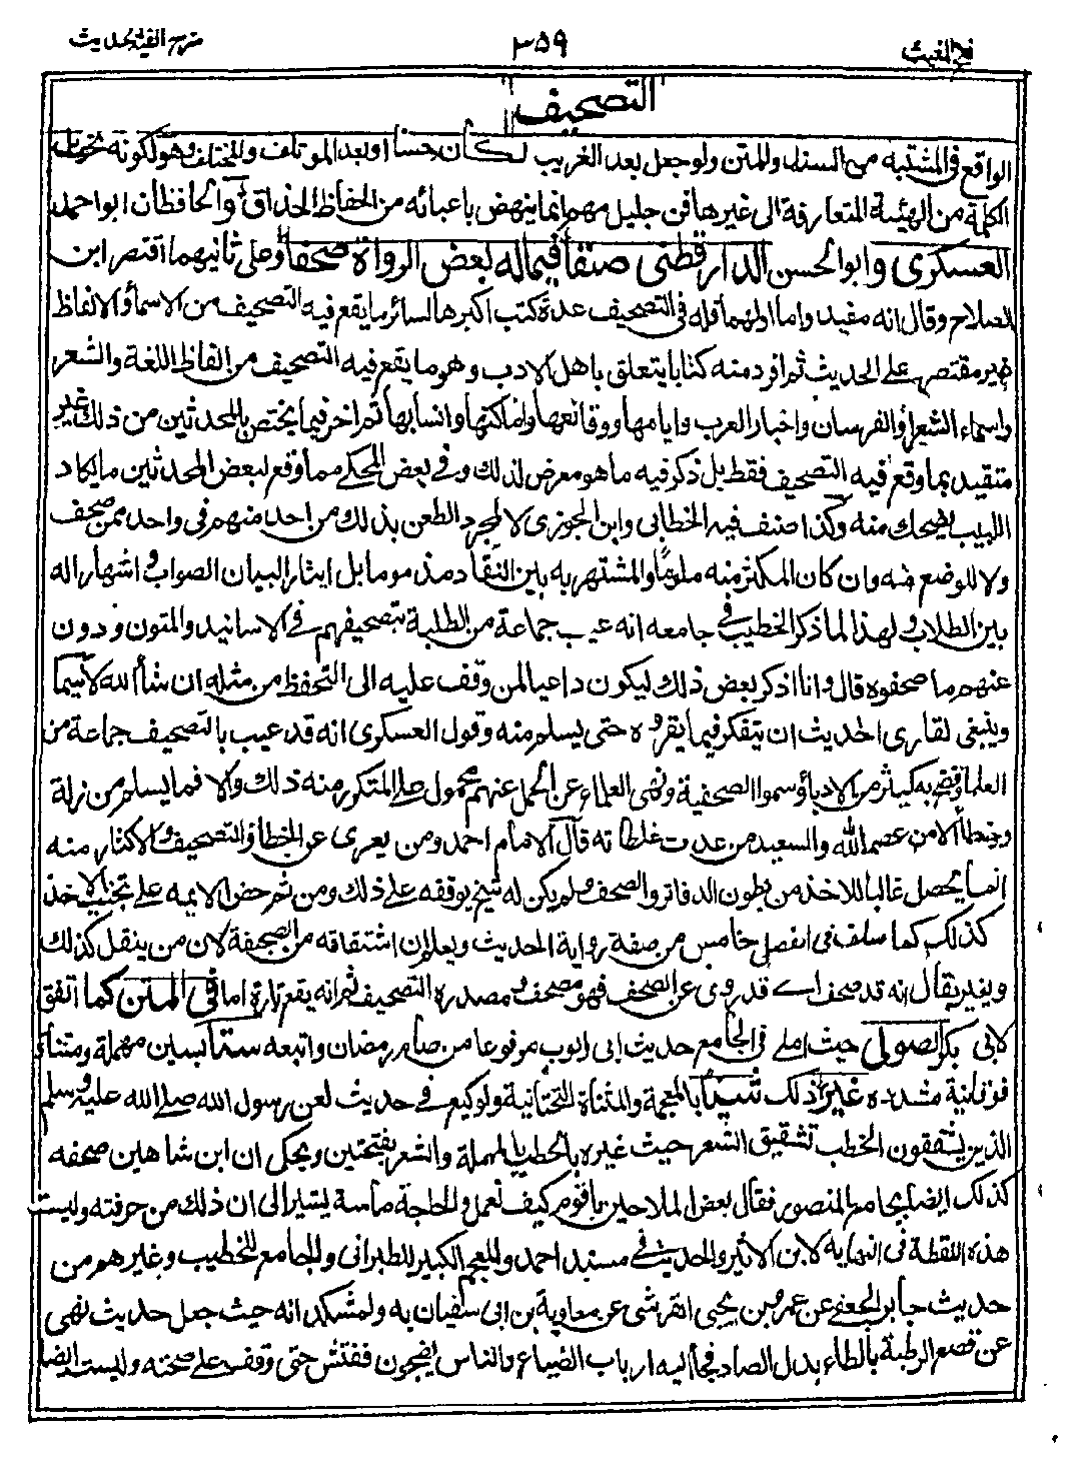 فتح المغيث ٣٥٩ شرح الفية الحديث
التصحيف
الواقع فى المشتبه من السند والمتن ولو جعل بعد الغريب لكان حسنا او بعد الموتلف والمختلف وهو لكونه تحويل
الكلمة من الهيئة المتعارفة الى غيرها فن جليل مهم انما ينهض باعبائه من الحفاظ الحذاق والحافظان ابو احمد
العسكرى وابو الحسن الدارقطنى صنفا فيما له بعض الرواة صحفا وعلى ثانيهما اقتصر ابن
الصلاح وقال انه مفيد واما اولهما فله فى التصحيف عدة كتب اكبرها لسائر ما يقع فيه التصحيف من الاسماء والالفاظ
غير مقتصر على الحديث ثم افرد منه كتابا يتعلق باهل الادب وهو ما يقع فيه التصحيف من الفاظ اللغة والشعر
واسماء الشعراء والفرسان واخبار العرب وايامها ووقائعها واماكنها وانسابها ثم اخر فيما يختص بالمحدثين من ذلك غير
متقيد بما وقع فيه التصحيف فقط بل ذكر فيه ما هو معرض لذلك وفى بعض المحكى مما وقع لبعض المحدثين ما يكاد
اللبيب يضحك منه وكذا صنف فيه الخطابى وابن الجوزى لا لمجرد الطعن بذلك من احد منهم فى واحد ممن صحف
ولا للوضع منه وان كان المكثر منه ملوما والمشتهر به بين النقاد مذموما بل ايثارا لبيان الصواب واشهارا له
بين الطلاب ولهذا لما ذكر الخطيب فى جامعه انه عيب جماعة من الطلبة بتصحيفهم فى الاسانيد والمتون ودون
عنهم ما صحفوه قال وانا اذكر بعض ذلك ليكون داعيا لمن وقف عليه الى التحفظ من مثله ان شاء الله لاسيما
وينبغى لقارى الحديث ان يتفكر فيما يقروه حتى يسلم منه وقول العسكرى انه قد عيب بالتصحيف جماعة من
العلماء وفضح به كثير من الادباء وسموا الصحفية ونهى العلماء عن الحمل عنهم محمول على المتكرر منه ذلك والا فما يسلم من زلة
وخطأ الا من عصم الله والسعيد من عدت غلطاته قال الامام احمد ومن يعرى عن الخطأ والتصحيف والاكثار منه
انما يحصل غالبا للاخذ من بطون الدفاتر والصحف ولم يكن له شيخ يوقفه على ذلك ومن ثم حض الايمه على تجنب الاخذ
كذلك كما سلف فى الفصل الخامس من صفة رواية الحديث ويعلم ان اشتقاقه من الصحيفة لان من ينقل كذلك
ويغير يقال انه قد صحف اے قد روى عن الصحف فهو مصحف ومصدره التصحيف ثم انه يقع تارة اما فى المتن كما اتفق
لابى بكر الصولى حيث املى فى الجامع حديث ابى ايوب مرفوعا من صام رمضان واتبعه ستا بسين مهملة ومثناة
فوقانية مشدده غير ذلك شيئا بالمعجمة والمثناة التحتانية ولوكيع فى حديث لعن رسول الله صلى الله عليه وسلم
الذين يشققون الخطب تشقيق الشعر حيث غيره بالحطب بالمهملة والشعر بفتحتين ويحكى ان ابن شاهين صحفه
كذلك ايضا بجامع المنصور فقال بعض الملاحين يا قوم كيف نعمل والحاجة ماسة يشير الى ان ذلك من حرفته وليست
هذه اللفظة فى النهايه لابن الاثير والحديث فى مسند احمد والمعجم الكبير للطبرانى والجامع للخطيب وغيرهم من
حديث جابر الجعفى عن عمرو بن يحيى القرشى عن معاوية بن ابى سفيان به ولمشكدانه حيث جعل حديث نهى
عن قصع الرطبة بالطاء بدل الصاد فجاء اليه ارباب الضياع والناس يضجون ففتش حتى وقف على صحته وليست ايضا